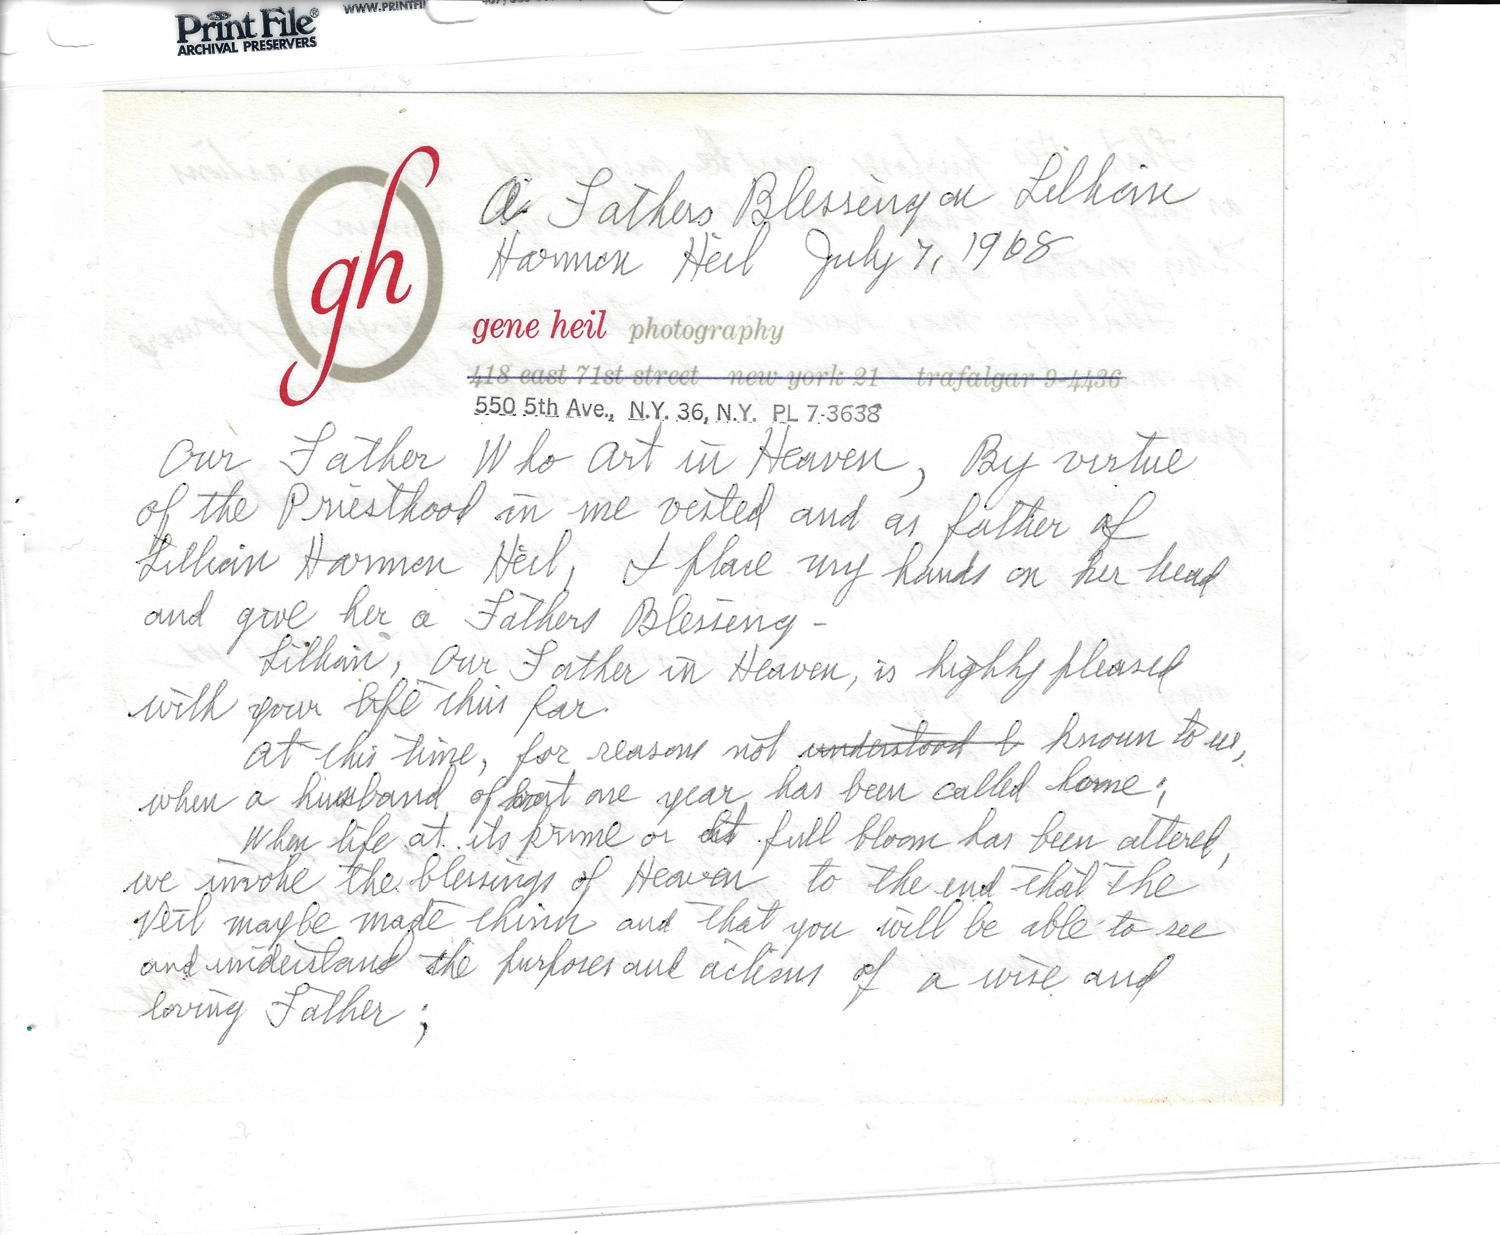 Print File®
ARCHIVAL PRESERVERS
gh
A Fathers Blessing on Lillian
Harmon Heil July 7, 1968
gene heil photography
418 east 71st street new york 21 trafalgar 9-4436
550 5th Ave., N.Y. 36, N.Y. PL 7-3638
Our Father Who Art in Heaven, By virtue
of the Priesthood in me vested and as father of
Lillian Harmon Heil, I place my hands on her head
and give her a Fathers Blessing -
Lillian, Our Father in Heaven, is highly pleased
with your life thus far.
At this time, for reasons not understood b known to us,
when a husband of but one year, has been called home;
When life at its prime or at full bloom has been altered,
we invoke the blessings of Heaven to the end that the
Veil maybe made thinn and that you will be able to see
and understand the purposes and actions of a wise and
loving Father;